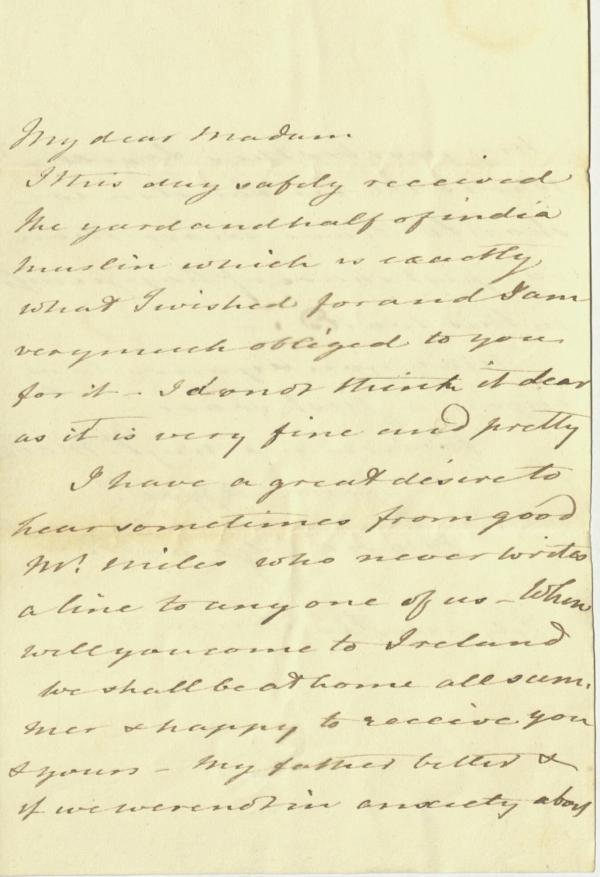 My dear Madam
I this day safely received
the yard and half of india
muslin which is exactly
what I wished for and I am
very much obliged to you
for it - I do not think it dear
as it is very fine and pretty
I have a great desire to
hear sometimes from good
Mr. Miles who never writes
a line to any one of us - When
will you come to Ireland
we shall be at home all sum.
mer & happy to receive you
& yours - My father better &
if we were not in anxiety about